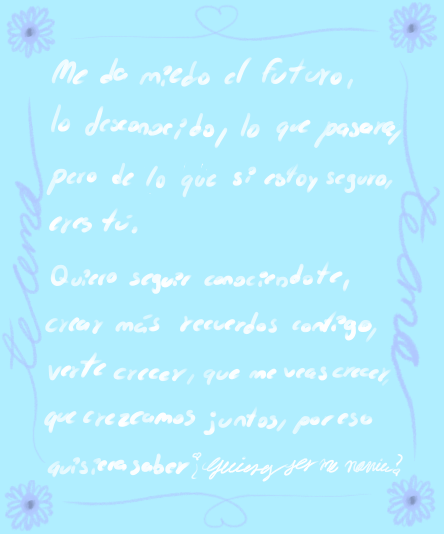 Me da miedo el futuro,
lo desconocido, lo que pasara,
pero de lo que si estoy seguro,
eres tú.
Quiero seguir conociendote,
crear más recuerdos contigo,
verte crecer, que me veas crecer,
que crezcamos juntos, por eso
quisiera saber ¿Quieres ser mi novia?
te amo
te amo